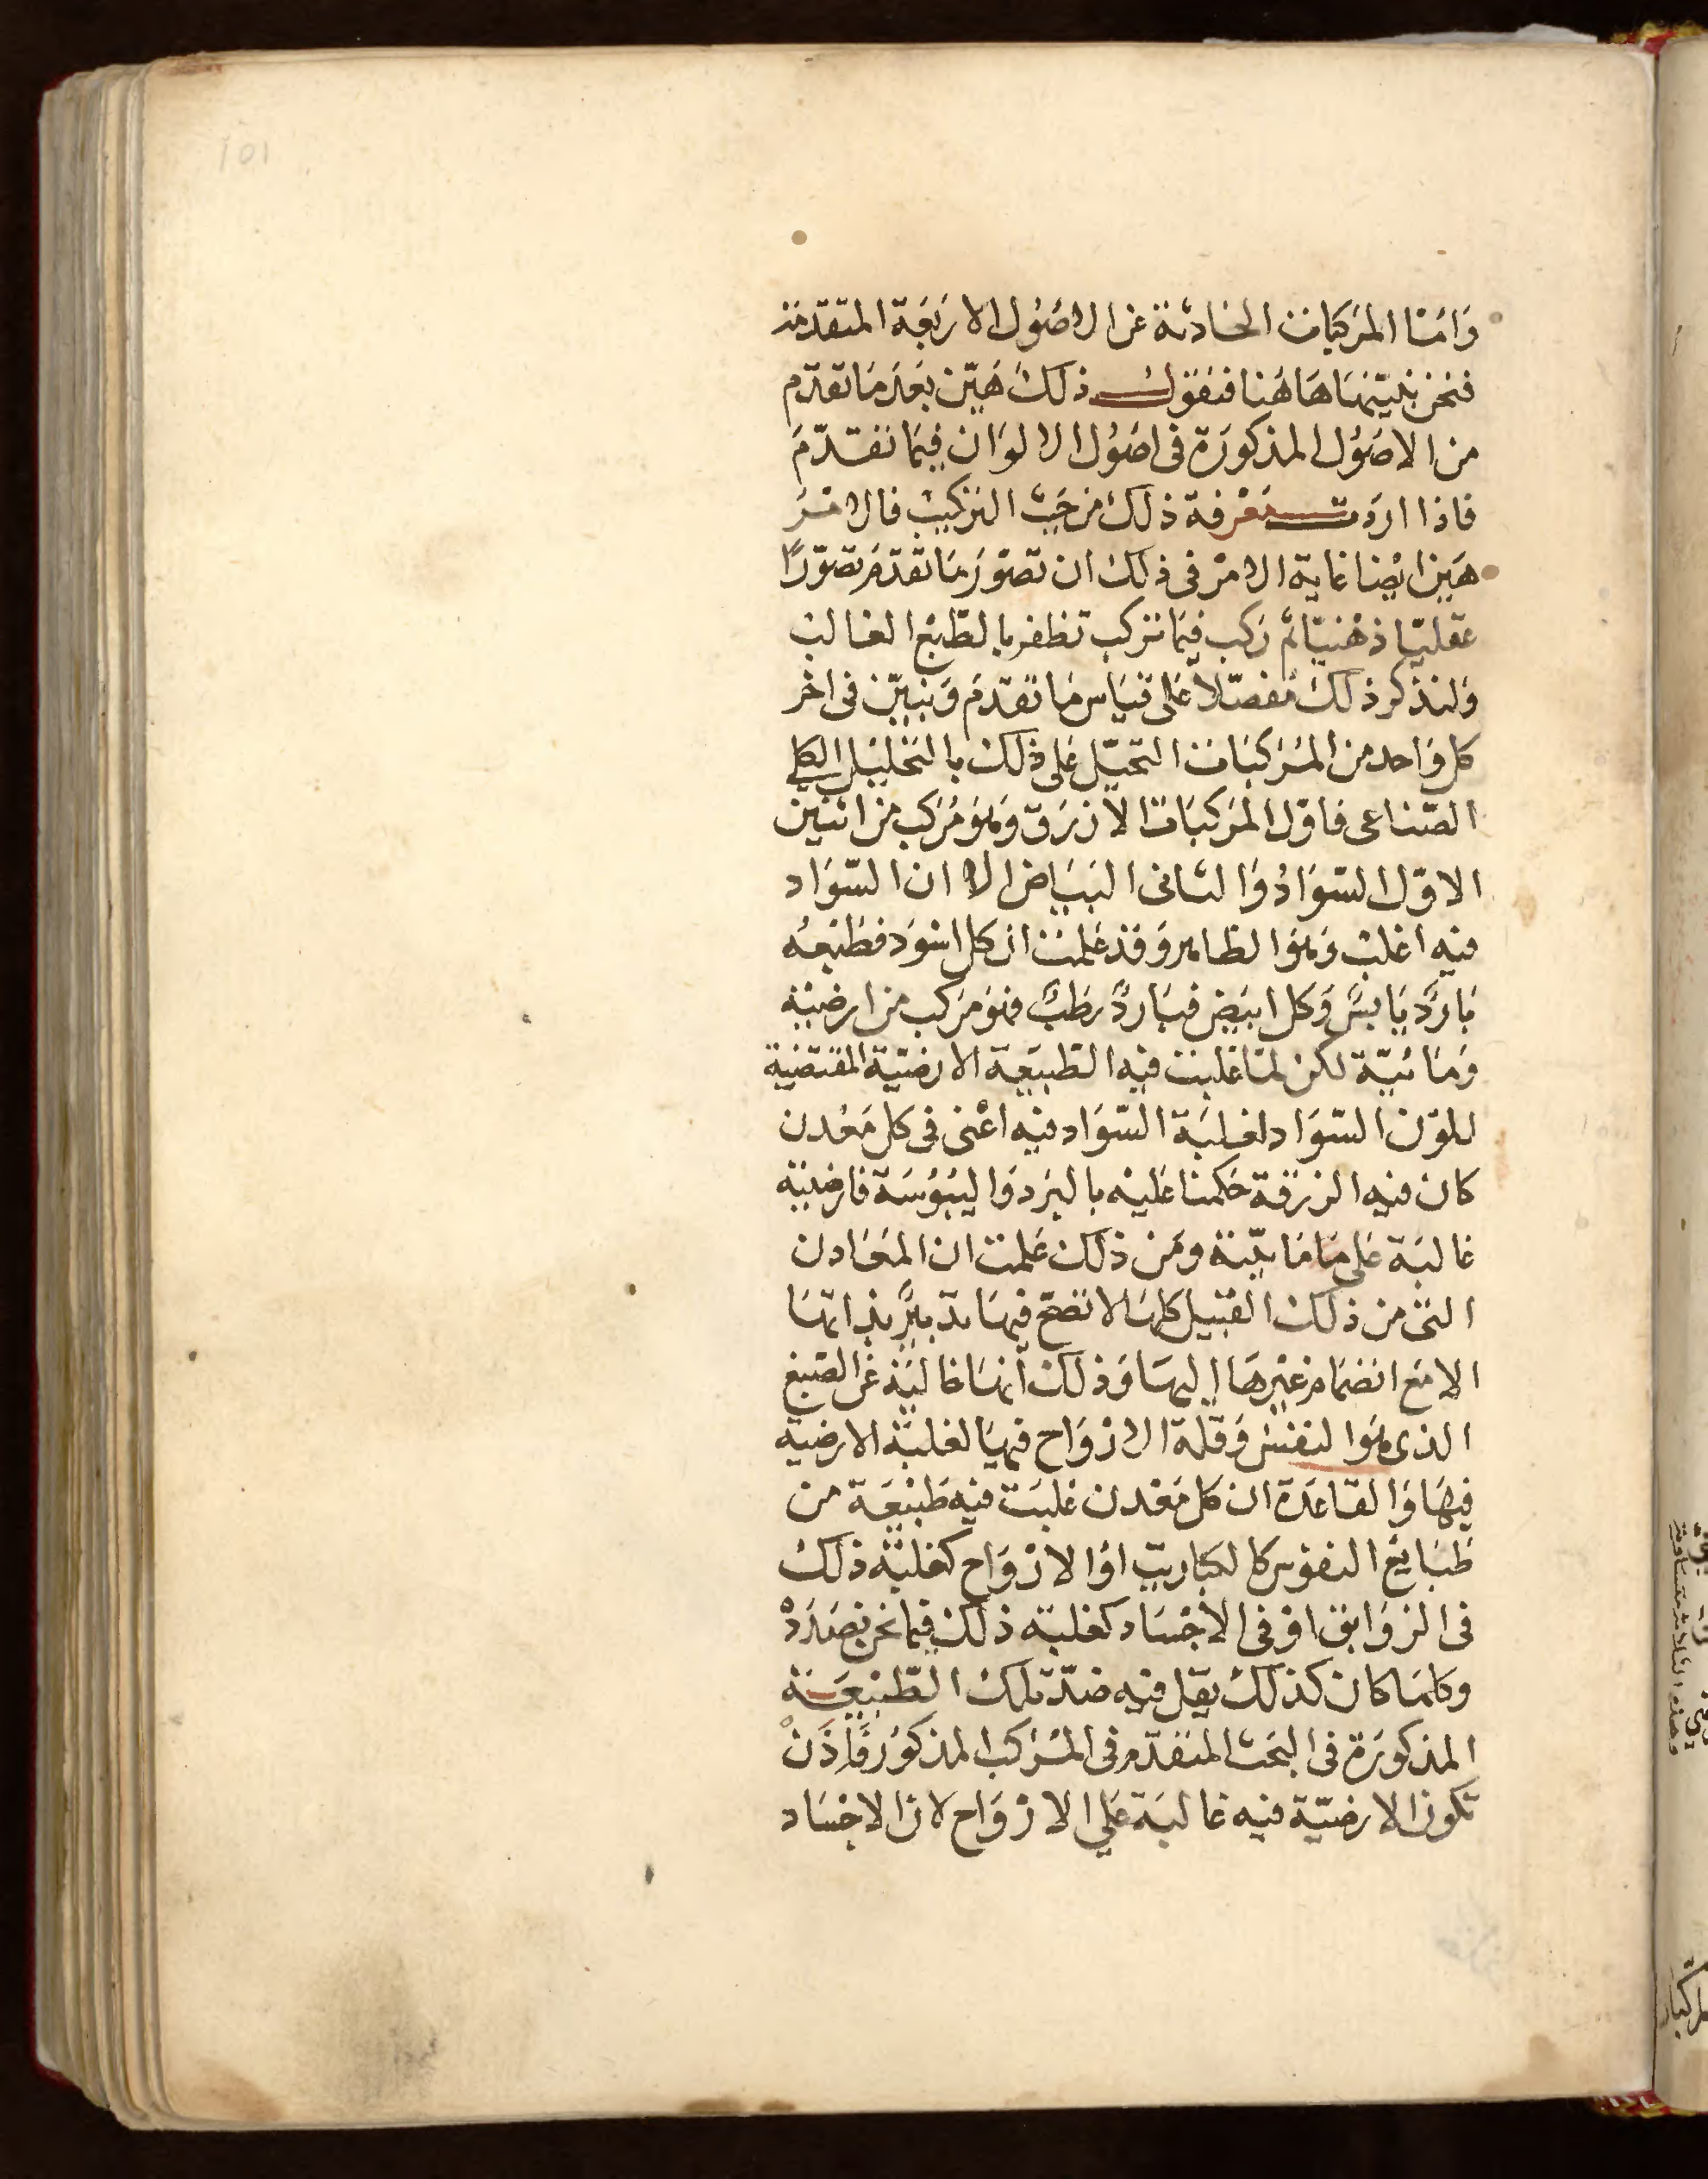 وَامّا المرَكبَات الحَادثة عن الاصُول الاربَعَة المتقدمَة
فنحن نبيّنهَا هَاهُنا فنقوَل ذلك هَيّن بَعدَ مَا تقدّم
من الاصُول المذكورَة فى اصُول الالوَان فيمَا تقدّمَ
فاذا اردَت مَعْرفة ذلك من حَيث التركيب فالامْرَ
هَين ايْضا غاية الامْر فى ذلك ان تصَوّرَ مَا تقدّمَ تصَوّرًا
عقليّا ذهْنيّا ثم ركب فيمَا تركب تظفر بالطّبْع الغالب
وَلنذكر ذلك مُفصّلاً عَلى قيَاس مَا تقدّمَ وَنبيّن فى اخر
كل وَاحد من المُرَكبَات التحيّل عَلى ذلك بالتحْليْل الكلى
الصّناعى فاوّل المرَكبَات الازرَق وَهوَ مُرَكب من اثنَين
الاوّل السّوَادُ وَالثانى البَيَاض الا ان السّوَاد
فيه اغلبْ وَهوَ الظاهر وَقد عَلمت ان كل اسْوَد فطبْعهُ
بَاردٌ يَابسٌ وَكل ابيَض فبَاردٌ رطبٌ فهوَ مرَكب من ارضيّة
وَمَائيّة لكن لمّا غلبت فيه الطّبيَعَة الارضيّة المقتضية
للوْن السّوَاد لغلبَة السّوَاد فيه اعْنى فى كل مَعْدن
كان فيه الزرْقة حَكمنا عَليْه بالبرَد وَاليُبُوسَة فارضيّة
غالبَة عَلى مَامَائيّة ومَن ذلك عَلمت ان المعَادن
التى من ذلك القبيْل كلهَا لا تصح فيهَا تدبيْر بذاتهَا
الا مَع انضمَام غيْرهَا اليهَا وَذلك انهَا خاليَة عَن الصّبغ
الذى هوَ النفسْ وَقلة الارْوَاح فيهَا لغلبة الارضية
فيهَا وَالقاعَدة ان كل مَعْدن غلبَت فيه طبْيعَة من
طبَايع النفوس كالكبَاريت اوْ الارْوَاح كغلبَة ذلك
فى الزوَابق اوْ فى الاجْسَاد كغلبَة ذلك فيمَا نحن بصَدَدْ
وَكلمَا كان كذلك يقل فيه ضدّ تلك الطّبْيعَة
المذكورَة فى البحَث المتقدّم فى المُرَكب المذكوُر فَاِذَنْ
تكون الارضيّة فيه غالبَة عَلى الارْوَاح لان الاجْسَاد
101